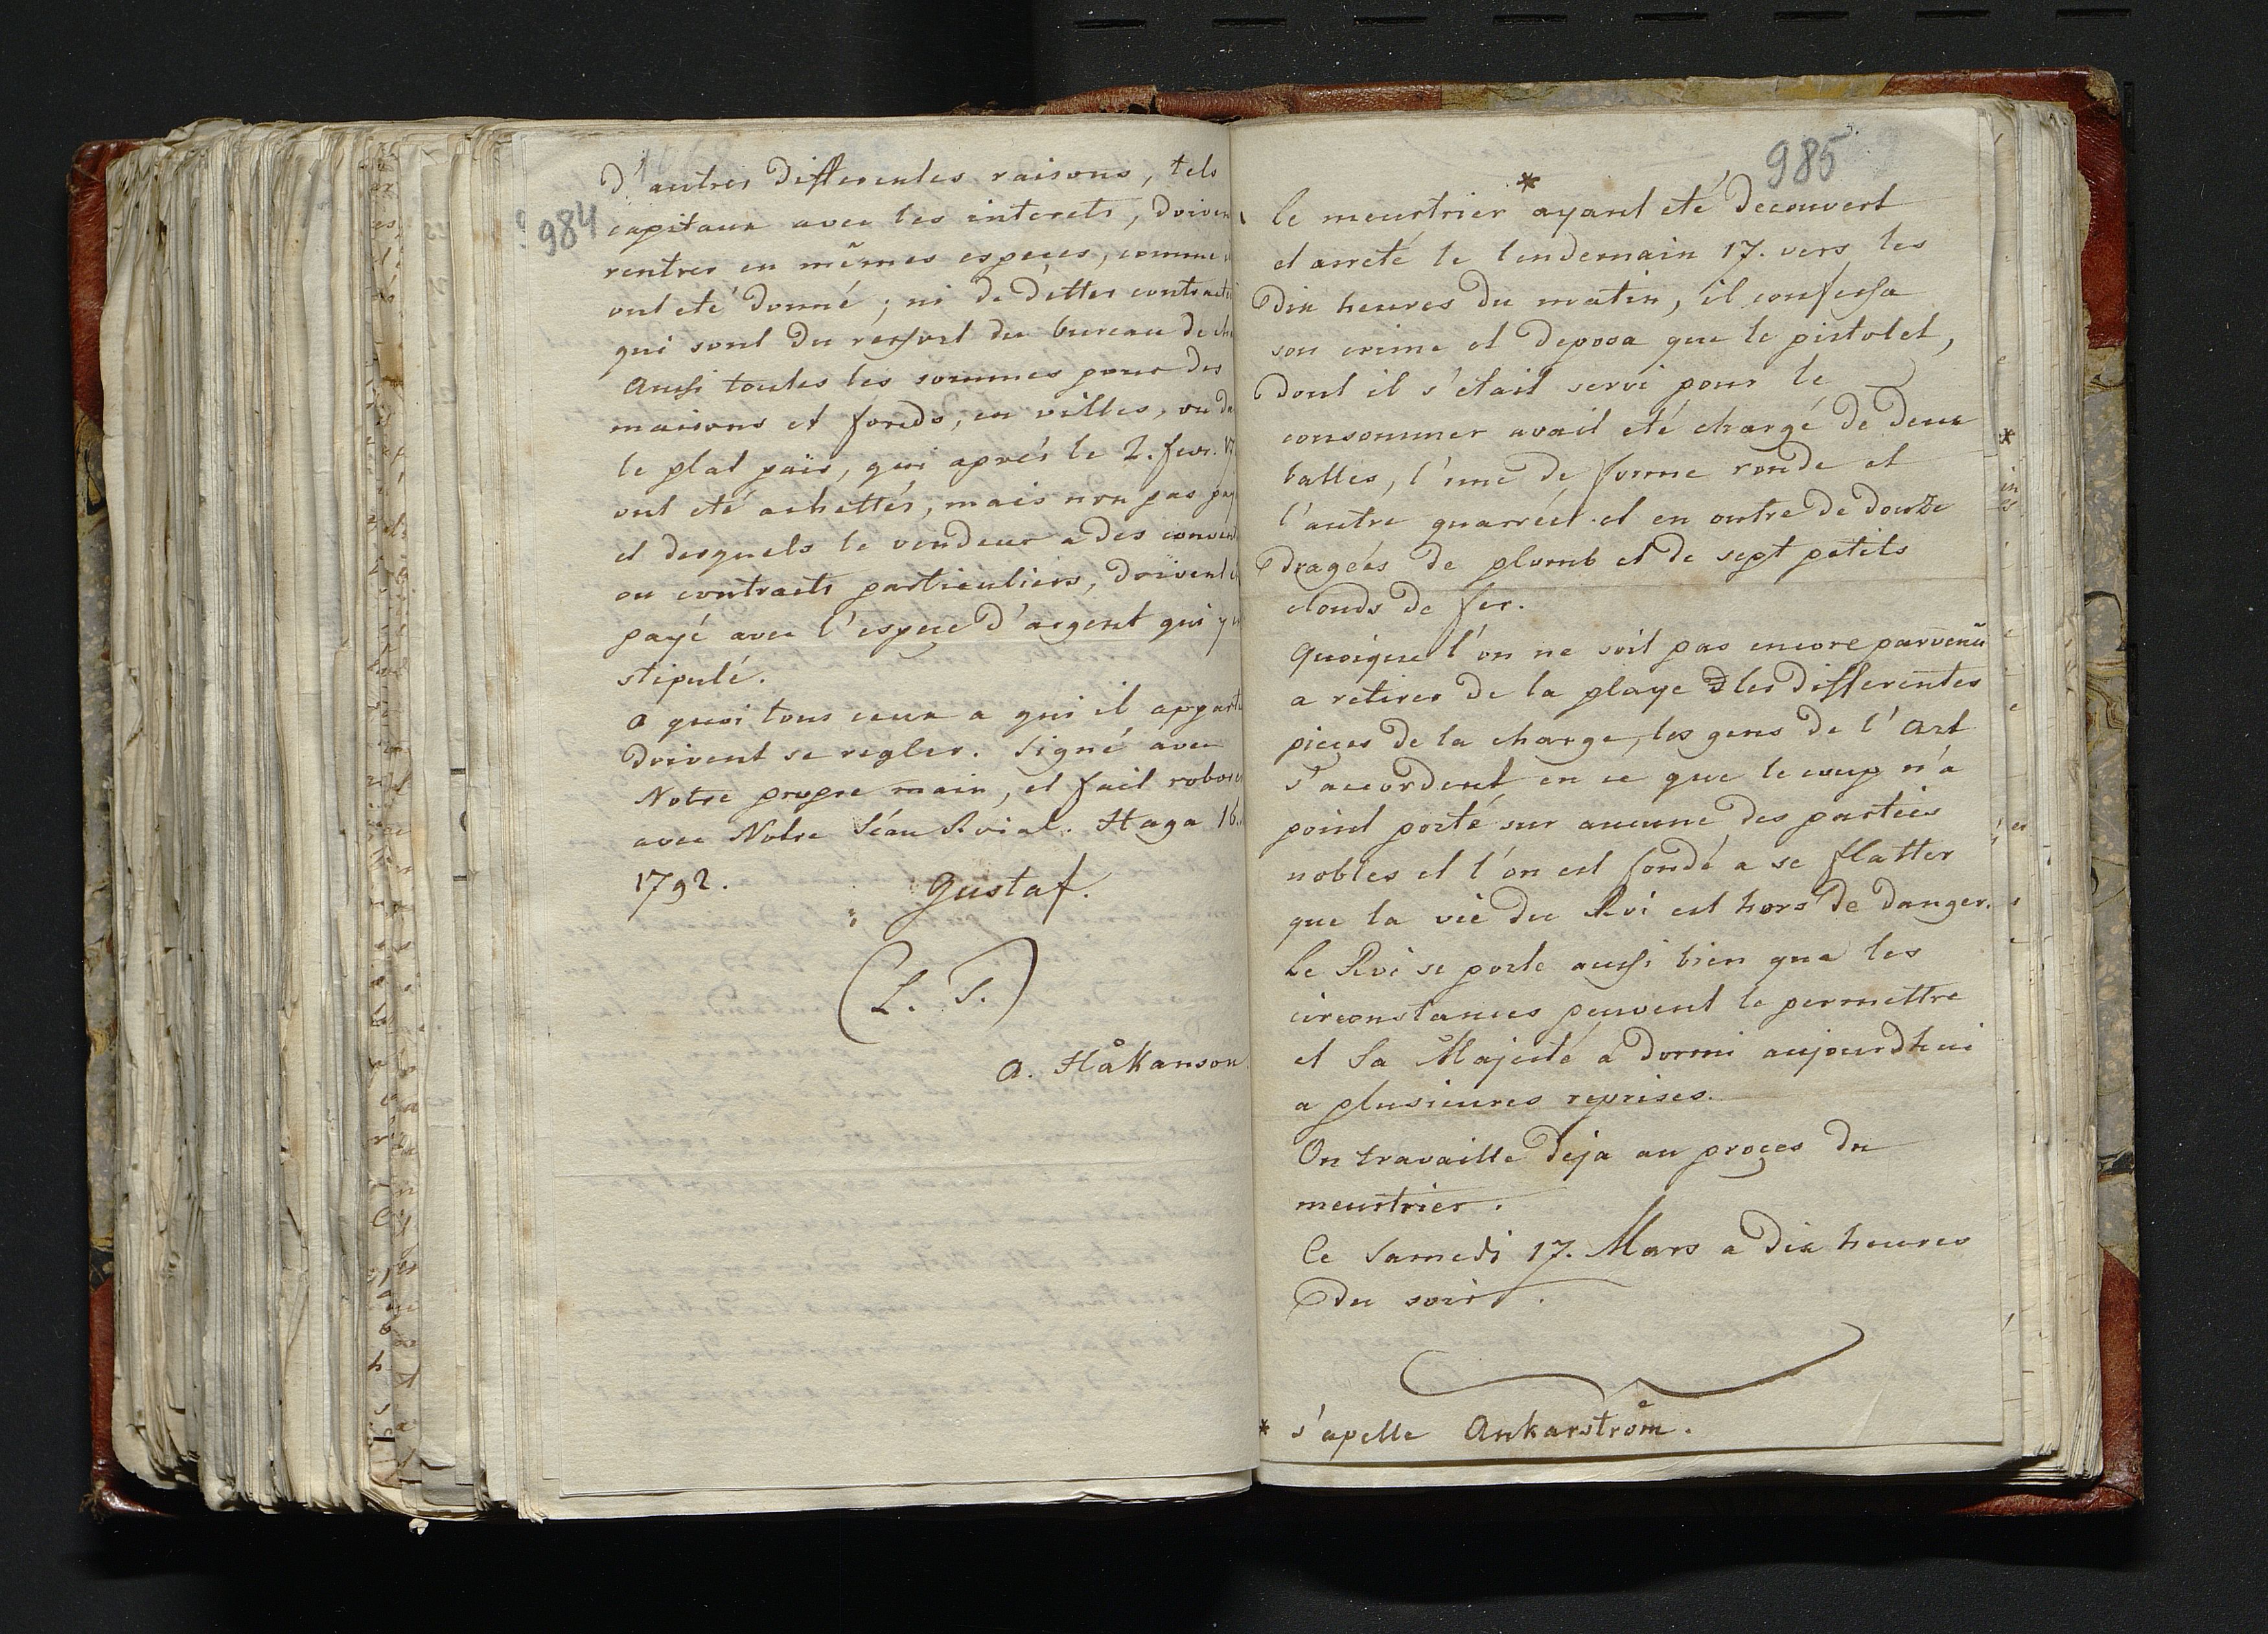 984
d'autres differentes raisons, tels
capitaux avec les interets, doivent
rentrer en mêmes especes, comme
ont eté donné; ni de dettes contracté
qui sont du ressort du bureau de
Aussi toutes les sommes pour des
maisons et fonds, en villes, ou
le plat païs, qui aprés le 2. fevr.
ont eté achettés, mais non pas
et desquels le vendeur a des
ou contracts particuliers, doivent
payé avec l'espece d'argent qui y
stipulé.
a quoi tous ceux a qui il
doivent se regler. Signé avec
Notre propre main, et fait
avec Notre Séau Roial. Haga 16.
1792.
Gustaf.
(L. S.)
A. Håkanson
985
le meurtrier * ayant eté decouvert
et arreté le lendemain 17. vers les
dix heures du matin, il confessa
son crime et deposa que le pistolet,
dont il s'etait servi pour le
consommer avait eté chargé de deux
balles, l'une de forme ronde et
l'autre quarréé et en outre de douze
drageés de plomb et de sept petits
clouds de fer.
Quoique l'on ne soit pas encore parvenû
a retirer de la playe les differentes
pieces de la charge, les gens de l'Art
s'accordent en ce que le coup n'a
point porté sur aucune des parties
nobles et l'on est fondé a se flatter
que la vie du Roi est hors de danger.
Le Roi se porte aussi bien que les
circonstances peuvent le permettre
et Sa Majesté a dormi aujourdhui
a plusieures reprises.
On travaille deja au proces du
meurtrier.
Ce Samedi 17. Mars a dix heures
du soir.
* s'apelle Ankarström.